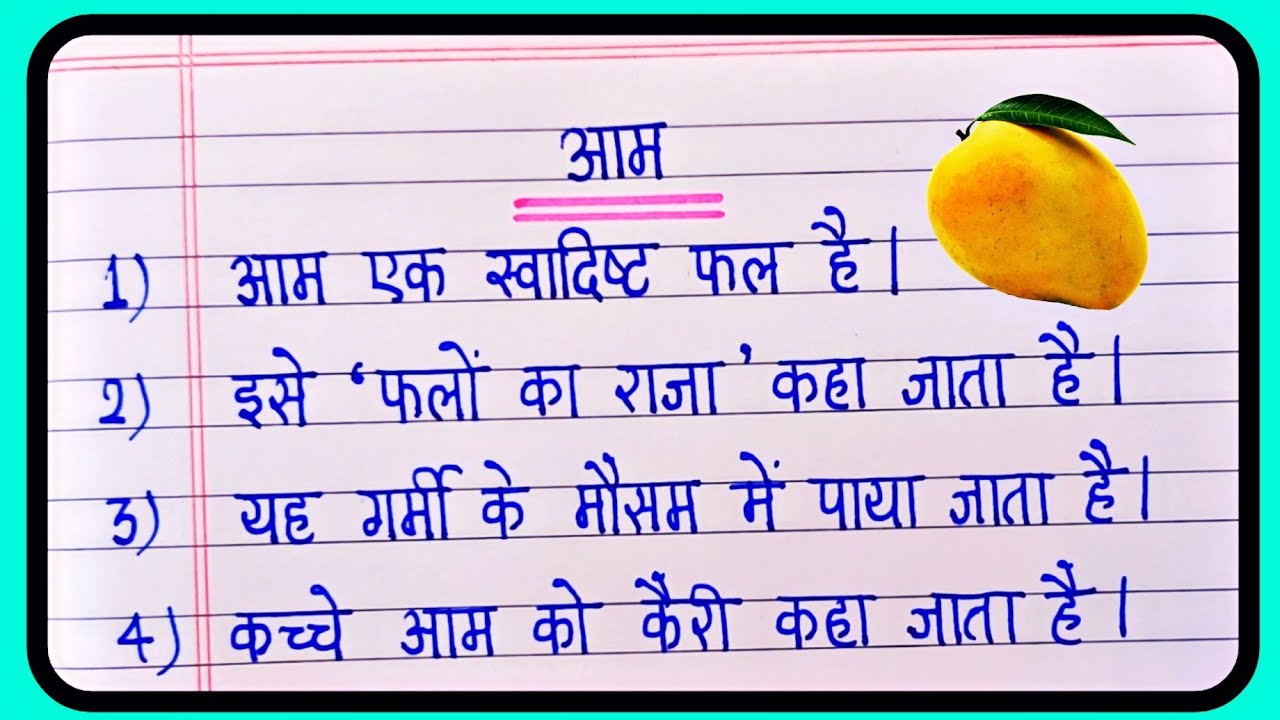 आम
1) आम एक स्वादिष्ट फल है।
2) इसे ‘फलों का राजा’ कहा जाता है।
3) यह गर्मी के मौसम में पाया जाता है।
4) कच्चे आम को कैरी कहा जाता है।